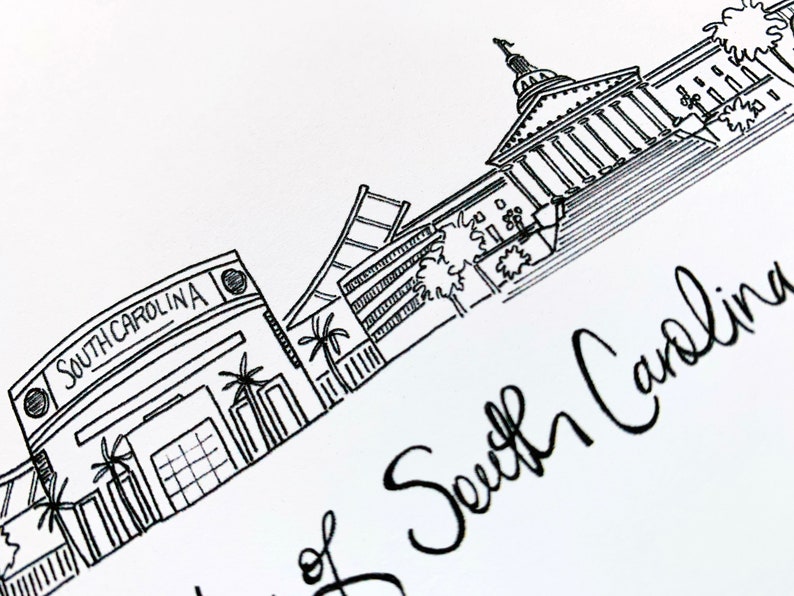 SOUTH CAROLINA
of South Carolina